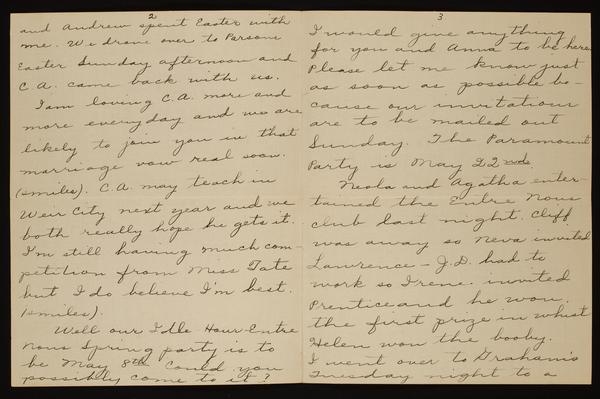 2
and Andrew spent Easter with
me. We drove over to Parsons
Easter Sunday afternoon and
C.A. came back with us.
I am loving C.A. more and
more everyday and we are
likely to join you in that
marriage vow real soon.
(smiles). C.A. may teach in
Weir City next year and we
both really hope he gets it.
I'm still having much com-
petition from Miss Tate
but I do believe I'm best.
(smiles).
Well our Idle Hour-Entre
Nous Spring party is to
be May 8th. Could you
possibly come to it?
3
I would give anything
for you and Anna to be here.
Please let me know just
as soon as possible be-
cause our invitations
are to be mailed out
Sunday. The Paramount
Party is May 22nd.
Neola and Agatha enter-
tained the Entre Nous
club last night. Cliff
was away so Neva invited
Lawrence - J.D. had to
work so Irene invited
Prentice and he won
the first prize in whist
Helen won the booby.
I went over to Graham's
Tuesday night to a